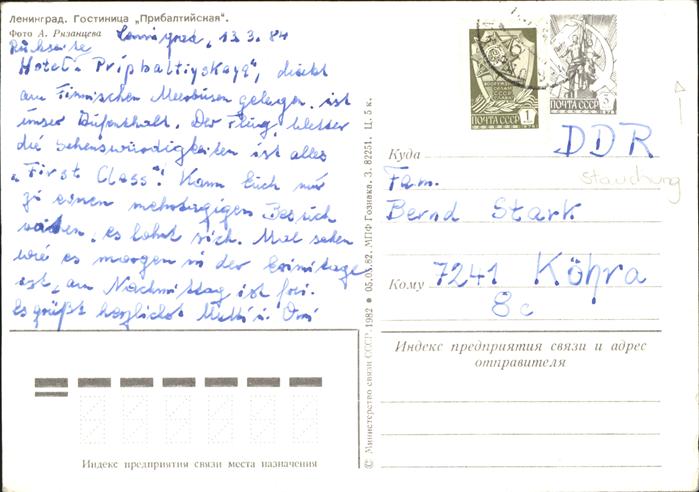 Ленинград. Гостиница „Прибалтийская“.
Фото А. Рязанцева
Leningrad, 13.3.84
Rückseite
Hotel „Pripbaltiyskaya“, direkt
am Finnischen Meerbusen gelegen, ist
unser Aufenthalt. Der Flug, Wetter
die Sehenswürdigkeiten ist alles
„First Class“! Kann Euch nur
zu einen mehrtägigen Besuch
raten, es lohnt sich. Mal sehen
wie es morgen in der Erimitage
ist, am Nachmittag ist frei.
Es grüßt herzlichst Mutti u. Omi
ПОЧТА СССР 1
ПОЧТА СССР 3
DDR
Куда
Stauchung
Fam.
Bernd Stark
Кому 7241 Köhra
8c
Индекс предприятия связи и адрес
отправителя
Индекс предприятия связи места назначения
© Министерство связи СССР, 1982 • 05.05.82. МПФ Гознака. З. 82251. Ц. 5 к.